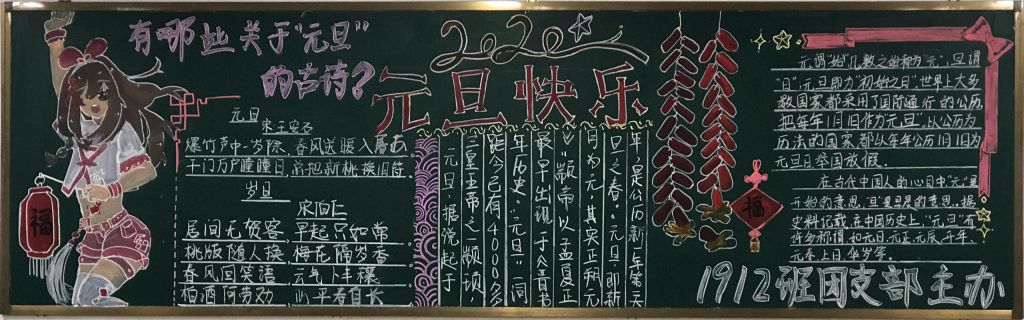 有哪些关于"元旦"
的古诗?
元旦
宋王安石
爆竹声中一岁除,春风送暖入屠苏
千门万户曈曈日,总把新桃换旧符
岁旦
宋伯仁
居间无贺客,早起只如常
桃版随人换,梅花隔岁香
春风回笑语,云气卜丰穰
柏酒何劳劝,心平寿自长
2020
元旦快乐
年,是公历新一年第一天
旦之春。"元旦"即新
月为元,其实正朔元
" 颛帝以孟夏正
最早出现于《晋书
年历史。"元旦"一词
距今已有4000多
三皇五帝之一颛顼,
元旦,据说起于
福
福
元谓"始",凡数之始称为"元";旦谓
"日";元旦即为"初始之日"世界上大多
数国家都采用了国际通行的公历,
把每年1月1日作为元旦",以公历为
历法的国家都以每年公历1月1日为
元旦日举国放假。
在古代中国人的心目中"元"是
开始的意思,"旦"是旦晨的意思。据
史料记载,在中国历史上,"元旦"有
许多称谓如元日、元正、元辰、
元春、上日、华岁等
1912班团支部主办